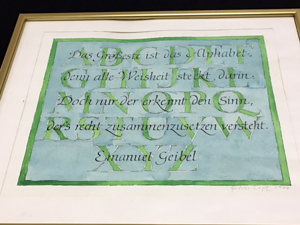 Das Größeste ist das Alphabet,
denn alle Weisheit steckt darin.
Doch nur der erkennt den Sinn,
der's recht zusammenzusetzen versteht.
Emanuel Geibel